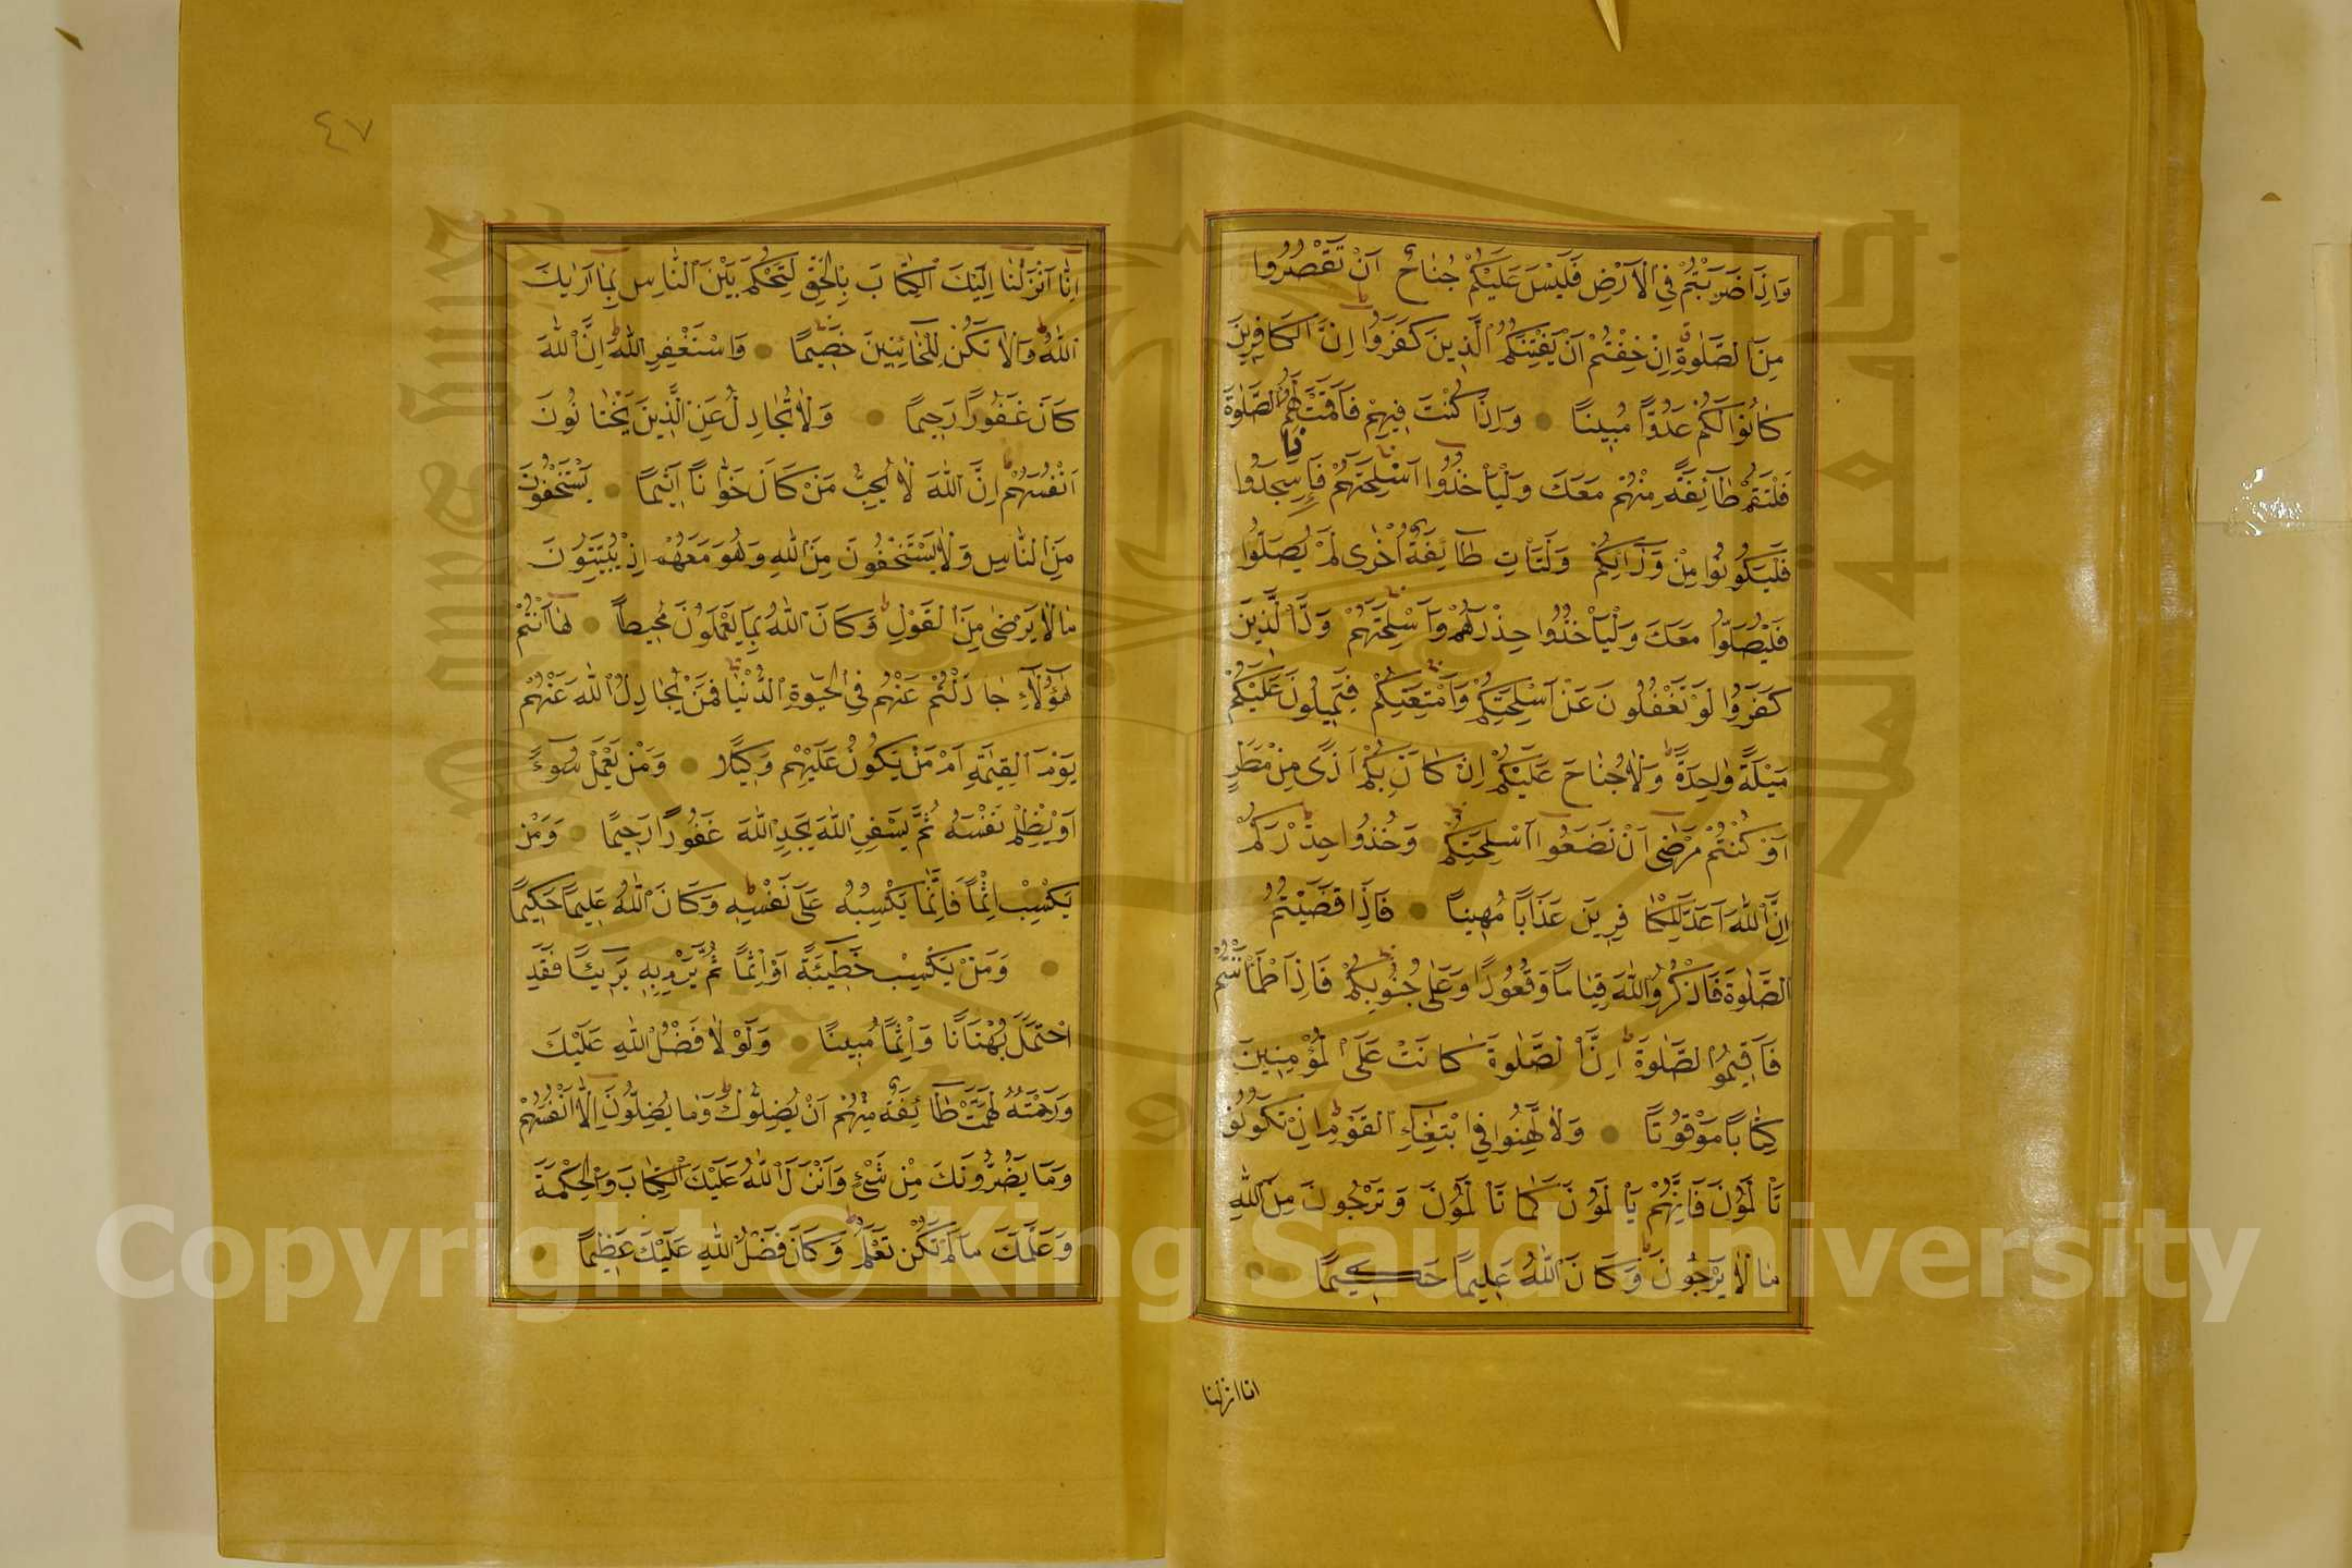 وَاِذَا ضَرَبْتُمْ فِي الْاَرْضِ فَلَيْسَ عَلَيْكُمْ جُنَاحٌ اَنْ تَقْصُرُوا
مِنَ الصَّلٰوةِ اِنْ خِفْتُمْ اَنْ يَفْتِنَكُمُ الَّذِينَ كَفَرُوا اِنَّ الكَافِرِينَ
كَانُوا لَكُمْ عَدُوًّا مُبِينًا وَاِذَا كُنْتَ فِيهِمْ فَاَقَمْتَ لَهُمُ الصَّلٰوةَ
فَلْتَقُمْ طَآئِفَةٌ مِنْهُمْ مَعَكَ وَلْيَأْخُذُوا اَسْلِحَتَهُمْ فَاِذَا سَجَدُوا
فَلْيَكُونُوا مِنْ وَرَآئِكُمْ وَلْتَأْتِ طَآئِفَةٌ اُخْرٰى لَمْ يُصَلُّوا
فَلْيُصَلُّوا مَعَكَ وَلْيَأْخُذُوا حِذْرَهُمْ وَاَسْلِحَتَهُمْ وَدَّ الَّذِينَ
كَفَرُوا لَوْ تَغْفُلُونَ عَنْ اَسْلِحَتِكُمْ وَاَمْتِعَتِكُمْ فَيَمِيلُونَ عَلَيْكُمْ
مَيْلَةً وَاحِدَةً وَلَا جُنَاحَ عَلَيْكُمْ اِنْ كَانَ بِكُمْ اَذًى مِنْ مَطَرٍ
اَوْ كُنْتُمْ مَرْضٰى اَنْ تَضَعُوا اَسْلِحَتَكُمْ وَخُذُوا حِذْرَكُمْ
اِنَّ اللّٰهَ اَعَدَّ لِلْكَافِرِينَ عَذَابًا مُهِينًا فَاِذَا قَضَيْتُمُ
الصَّلٰوةَ فَاذْكُرُوا اللّٰهَ قِيَامًا وَقُعُودًا وَعَلٰى جُنُوبِكُمْ فَاِذَا طْمَأْنَنْتُمْ
فَاَقِيمُوا الصَّلٰوةَ اِنَّ الصَّلٰوةَ كَانَتْ عَلَى الْمُؤْمِنِينَ
كِتَابًا مَوْقُوتًا وَلَا تَهِنُوا فِي ابْتِغَآءِ القَوْمِ اِنْ تَكُونُوا
تَأْلَمُونَ فَاِنَّهُمْ يَأْلَمُونَ كَمَا تَأْلَمُونَ وَتَرْجُونَ مِنَ اللّٰهِ
مَا لَا يَرْجُونَ وَكَانَ اللّٰهُ عَلِيمًا حَكِيمًا
انا انزلنا
٤٧
اِنَّا اَنْزَلْنَا اِلَيْكَ الْكِتَابَ بِالْحَقِّ لِتَحْكُمَ بَيْنَ النَّاسِ بِمَا اَرٰيكَ
اللّٰهُ وَلَا تَكُنْ لِلْخَآئِنِينَ خَصِيمًا وَاسْتَغْفِرِ اللّٰهَ اِنَّ اللّٰهَ
كَانَ غَفُورًا رَحِيمًا وَلَا تُجَادِلْ عَنِ الَّذِينَ يَخْتَانُونَ
اَنْفُسَهُمْ اِنَّ اللّٰهَ لَا يُحِبُّ مَنْ كَانَ خَوَّانًا اَثِيمًا يَسْتَخْفُونَ
مِنَ النَّاسِ وَلَا يَسْتَخْفُونَ مِنَ اللّٰهِ وَهُوَ مَعَهُمْ اِذْ يُبَيِّتُونَ
مَا لَا يَرْضٰى مِنَ الْقَوْلِ وَكَانَ اللّٰهُ بِمَا يَعْمَلُونَ مُحِيطًا هَا اَنْتُمْ
هٰؤُلَآءِ جَادَلْتُمْ عَنْهُمْ فِي الْحَيٰوةِ الدُّنْيَا فَمَنْ يُجَادِلُ اللّٰهَ عَنْهُمْ
يَوْمَ الْقِيٰمَةِ اَمْ مَنْ يَكُونُ عَلَيْهِمْ وَكِيلًا وَمَنْ يَعْمَلْ سُوءً
اَوْ يَظْلِمْ نَفْسَهُ ثُمَّ يَسْتَغْفِرِ اللّٰهَ يَجِدِ اللّٰهَ غَفُورًا رَحِيمًا وَمَنْ
يَكْسِبْ اِثْمًا فَاِنَّمَا يَكْسِبُهُ عَلٰى نَفْسِهِ وَكَانَ اللّٰهُ عَلِيمًا حَكِيمًا
وَمَنْ يَكْسِبْ خَطِيئَةً اَوْ اِثْمًا ثُمَّ يَرْمِ بِهِ بَرِيئًا فَقَدِ
احْتَمَلَ بُهْتَانًا وَاِثْمًا مُبِينًا وَلَوْلَا فَضْلُ اللّٰهِ عَلَيْكَ
وَرَحْمَتُهُ لَهَمَّتْ طَآئِفَةٌ مِنْهُمْ اَنْ يُضِلُّوكَ وَمَا يُضِلُّونَ اِلَّا اَنْفُسَهُمْ
وَمَا يَضُرُّونَكَ مِنْ شَيْءٍ وَاَنْزَلَ اللّٰهُ عَلَيْكَ الْكِتَابَ وَالْحِكْمَةَ
وَعَلَّمَكَ مَا لَمْ تَكُنْ تَعْلَمُ وَكَانَ فَضْلُ اللّٰهِ عَلَيْكَ عَظِيمًا
Copyright © King Saud University